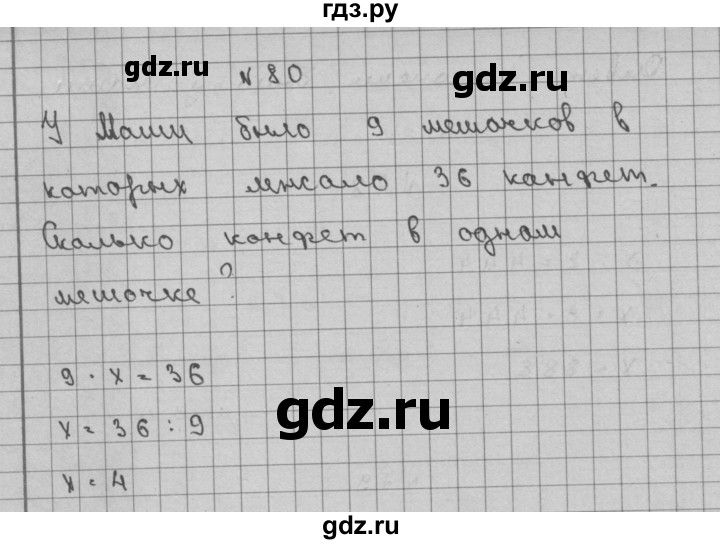 гдз.ру
gdz.ru
gdz.ru
N 80
У Маши было 9 мешочков в
которых лежало 36 конфет.
Сколько конфет в одном
мешочке?
9 · x = 36
x = 36 : 9
x = 4
gdz.ru
gdz.ru